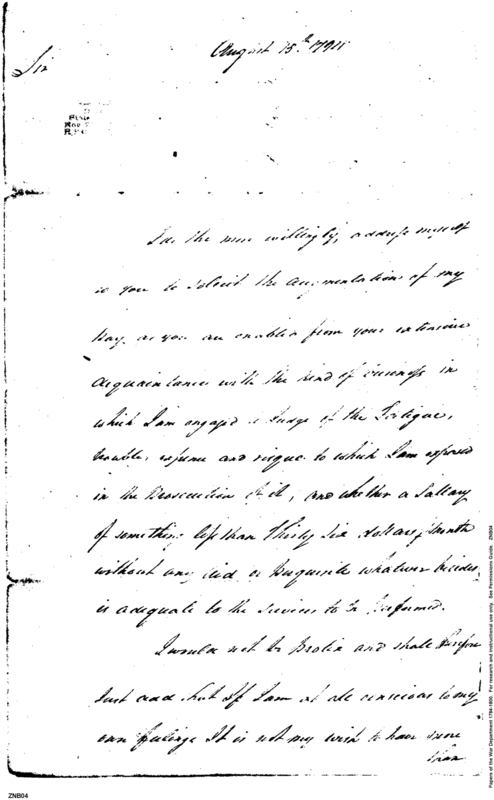 August 15th 1791
Sir
I do the more willingly, address myself
to you to Solicit the augmentation of my
Pay, as you are enabled from your extensive
Acquaintance with the kind of business in
which I am engaged to Judge of the Fatigue,
trouble, expense and risque to which I am exposed
in the Prosecution of it, and whether a Sallary
of something less than Thirty Six dollars month
without any Aid or Perquisite whatever besides,
is adequate to the Services to be Performed.
I would not be Prolix and shall therefore
Just add that If I am at all conscious to my
own feelings It is not my wish to have more
than
ZNB04
Papers of the War Department 1784-1800. For research and instructional use only. See Permissions Guide. ZNB04